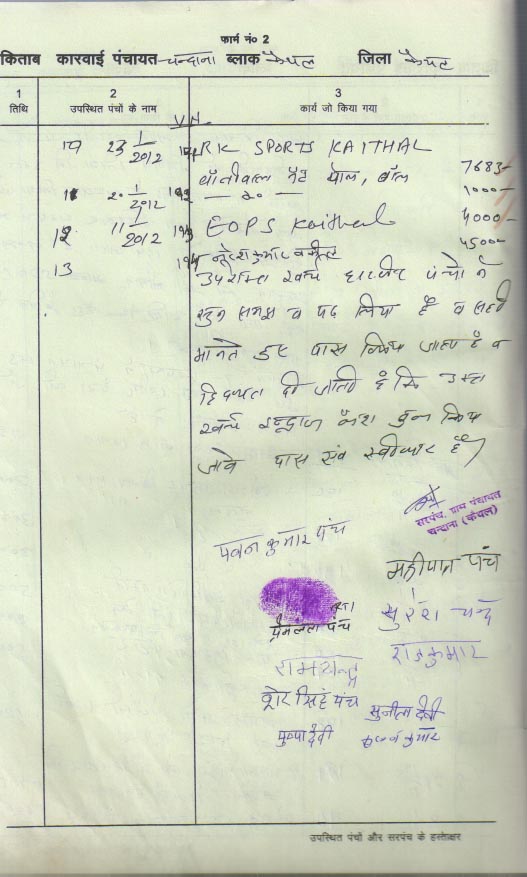 फार्म नं० 2
किताब कारवाई पंचायत चन्दाना ब्लाक कैथल जिला कैथल
1 2 3
तिथि उपस्थित पंचों के नाम कार्य जो किया गया
V.N.
23 1/2012 RK SPORTS KAITHAL
वॉलीवाल नैट बॉल 7683-
1/2012 192 — do — 1000-
12 11 1/2012 193 EOPS Kaithal 4000-
13 194 4500-
उपरोक्त खर्च हाजरीन पंचों ने
सुन समझ व पढ़ लिया है व सही
मानते हुए पास किया जाता है व
हिदायत दी जाती है कि उक्त
खर्च कैश बुक किया
जावे पास एवं स्वीकार है
सरपंच, ग्राम पंचायत
चन्दाना (कैथल)
पवन कुमार पंच
महीपाल पंच
प्रेमलता पंच
सुरेश चन्द
रामचन्द्र
राजकुमार
शेर सिंह पंच
सुनीता देवी
पुष्पा देवी
कुमार
उपस्थित पंचों और सरपंच के हस्ताक्षर